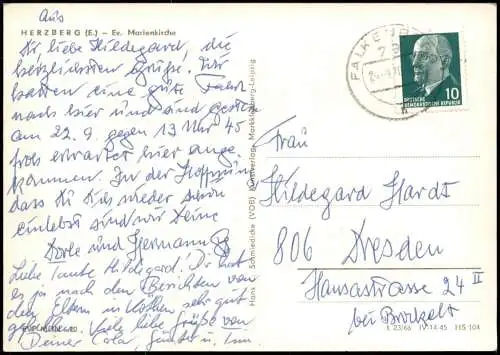 Aus
HERZBERG (E.) — Ev. Marienkirche
Dir liebe Hildegard, die
herzlichsten Grüße. Wir
hatten eine gute Fahrt
nach hier und sind gestern
am 22.9. gegen 13 Uhr 45
froh erwartet hier ange
kommen. In der Hoffnung
dass Du Dich wieder schön
einlebst sind wir Deine
Dorle und Hermann
Liebe Tante Hildegard! Dir hat
es ja nach den Berichten von
den Eltern in Köthen sehr gut
gefallen. Viele liebe Grüße von
Deiner
Hans C. Schmiedicke (VOB) Kunstverlag Markkleeberg-Leipzig
FALKENBERG
10
DEUTSCHE
DEMOKRATISCHE REPUBLIK
Frau
Hildegard Hardt
806 Dresden
Hansastrasse 24 II
bei
L 23/66 IV-14-45 HS 104